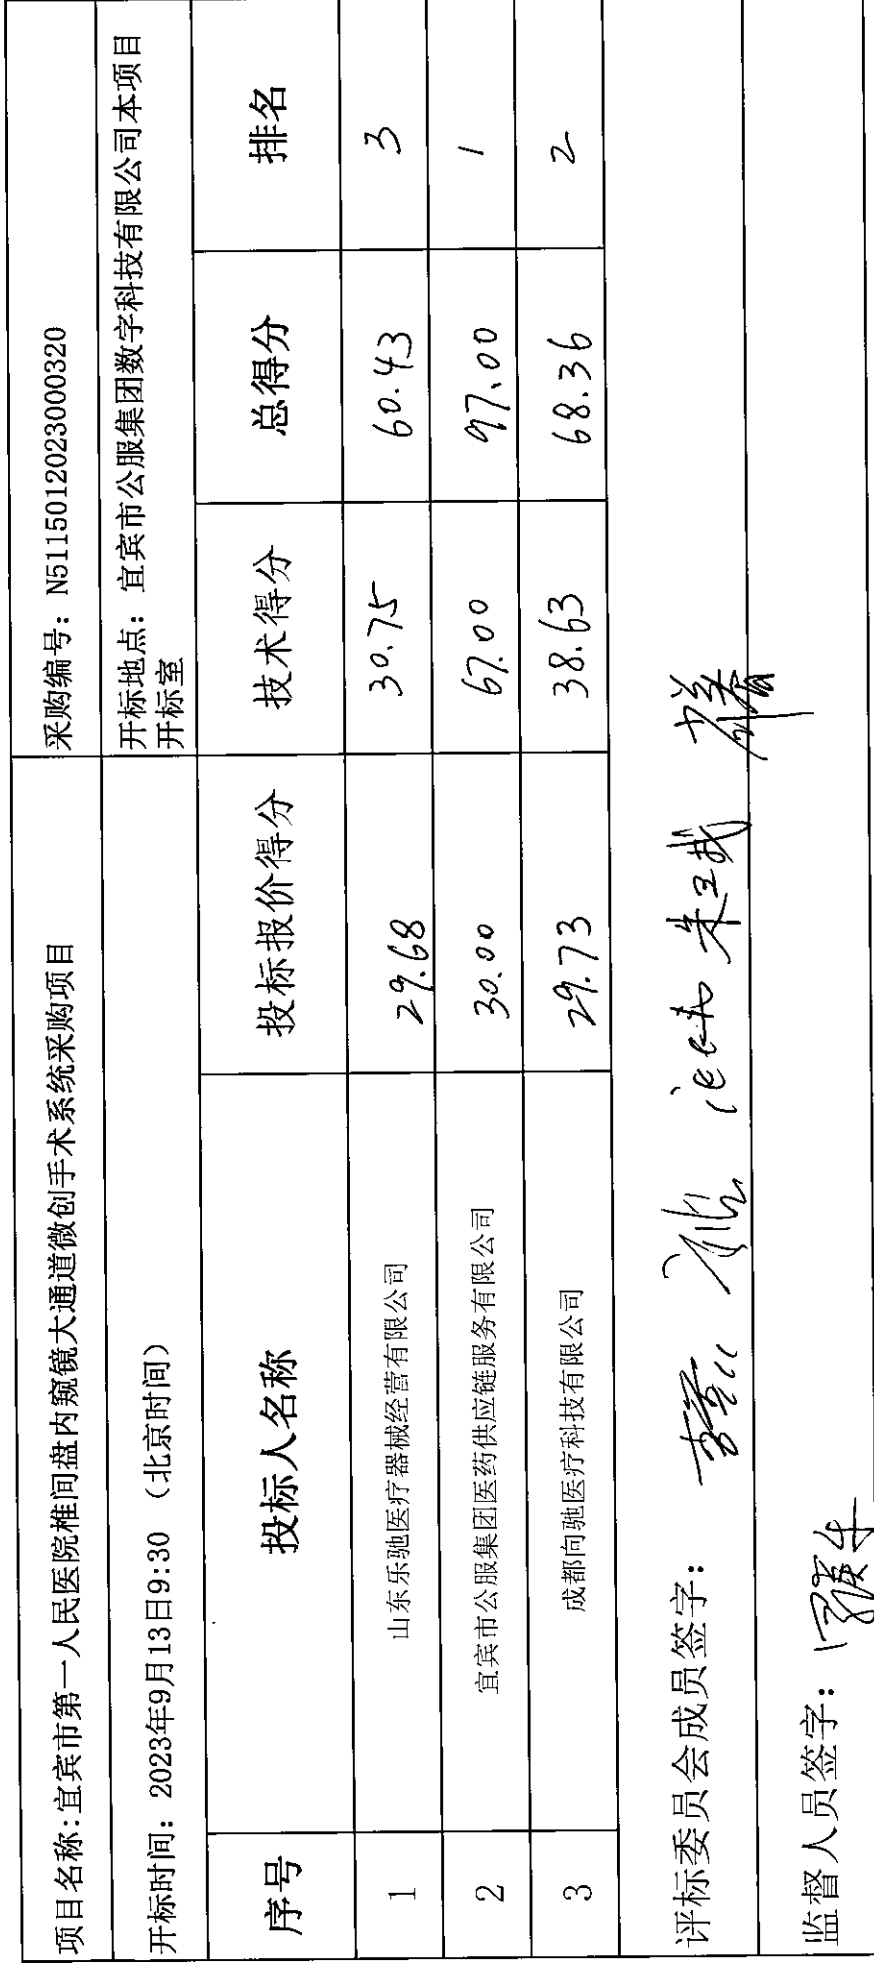 项目名称:宜宾市第一人民医院椎间盘内窥镜大通道微创手术系统采购项目 采购编号：N5115012023000320
开标时间：2023年9月13日9:30 （北京时间） 开标地点：宜宾市公服集团数字科技有限公司本项目
开标室
序号 投标人名称 投标报价得分 技术得分 总得分 排名
1 山东乐驰医疗器械经营有限公司 29.68 30.75 60.43 3
2 宜宾市公服集团医药供应链服务有限公司 30.00 67.00 97.00 1
3 成都向驰医疗科技有限公司 29.73 38.63 68.36 2
评标委员会成员签字：
监督人员签字：